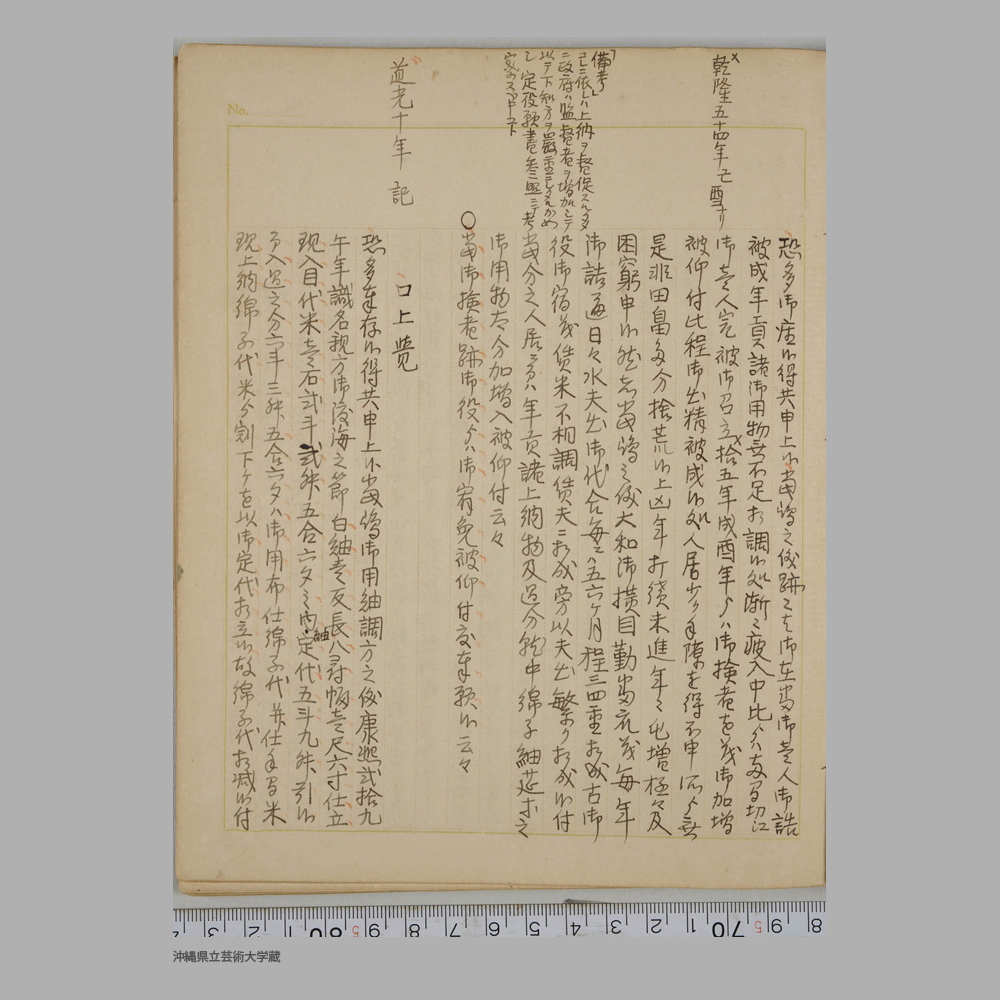 乾隆五十四年己酉ナリ
恐多御座候得共申上候当嶋之儀跡々者御在番御壱人御詰
被成年貢諸御用物無不足相調候処漸々疲入中比より両首切に
御壱人完被御召立拾五年成酉年よりハ御検者を茂御加増
被仰付此程御出精被成候処人居少ク手隙を得不申所より無
是非田畠多分捨荒候上凶年打続未進年々屯増極々及
困窮申候然者当嶋之儀大和御横目勤番衆茂毎年
御詰通日々水夫出御代合毎ニハ五六ケ月程三四重相成古御
役御宿茂賃米不相調賃夫ニ相成旁以夫出繁ク相成候付
当分之人居ニ而ハ年貢諸上納物及過分就中綿子紬莚等之
御用物太分加増入被仰付云々
「備考」
コレニ依レハ上納ヲ督促スル為
ニ政府ハ監督者ヲ増加シテ
以テ下知方ヲ厳重ニシタルカ如
シ 定役願書参照シテ考
究スベキコト
○当御検者跡御役よりハ御宥免被仰付度奉願候云々
道光十年 記
口上覚
恐多奉存候得共申上候当嶋御用紬調方之儀康熙弐拾九
午年識名親方御渡海之節白紬壱反長八尋幅壱尺六寸仕立
現入目代米壱石弐斗弐舛五合六夕之内紬定代五斗九舛引候
而入過之分六斗三舛五合六夕ハ御用布仕綿子代并仕手間米
現上納綿子代米より割下ケを以御定代相立候故綿子代相減候付
No.
沖縄県立芸術大学蔵